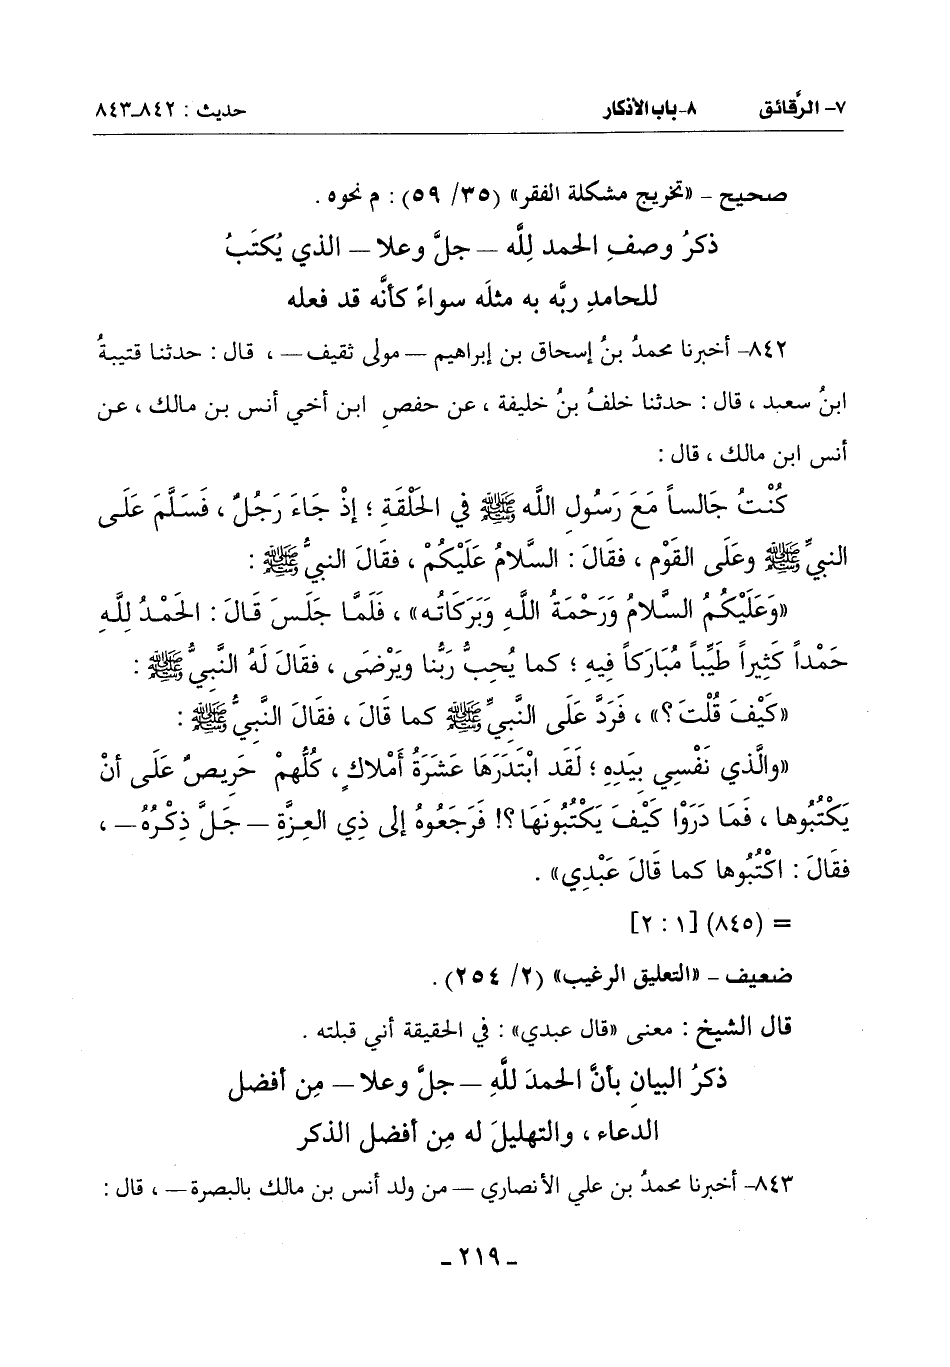 ٧- الرَّقائق ٨-باب الأذكار حديث : ٨٤٢ـ٨٤٣
صحيح – «تخريج مشكلة الفقر» (٣٥/ ٥٩) : م نحوه .
ذكرُ وصفِ الحمد لِلَّه – جلَّ وعلا – الذي يُكتَبُ
للحامدِ ربَّه به مثلَه سواءً كأنَّه قد فعله
٨٤٢– أخبرنا محمدُ بنُ إسحاق بن إبراهيم – مولى ثقيف – ، قال : حدثنا قتيبةُ
ابنُ سعيد ، قال : حدثنا خلفُ بنُ خليفة ، عن حفصِ ابن أخي أنس بن مالك ، عن
أنس ابن مالك ، قال :
كُنْتُ جَالساً مَعَ رَسُولِ اللَّه ﷺ في الحَلْقَةِ ؛ إذْ جَاءَ رَجُلٌ ، فَسَلَّمَ عَلَى
النبيِّ ﷺ وعَلَى القَوْمِ ، فقَالَ : السَّلامُ عَلَيْكُمْ ، فقَالَ النبيُّ ﷺ :
«وَعَلَيْكُمُ السَّلامُ وَرَحْمَةُ اللَّهِ وَبَرَكَاتُه» ، فَلَمَّا جَلَسَ قَالَ : الحَمْدُ لِلَّهِ
حَمْداً كَثِيراً طَيِّباً مُبَارَكاً فيهِ ؛ كما يُحِبُّ رَبُّنا ويَرْضَى ، فقَالَ لَهُ النَّبِيُّ ﷺ :
«كَيْفَ قُلْتَ ؟» ، فَرَدَّ عَلَى النَّبيِّ ﷺ كما قَالَ ، فقَالَ النَّبيُّ ﷺ :
«والَّذي نَفْسِي بيَدِهِ ؛ لَقَد ابْتَدَرَهَا عَشَرَةُ أَمْلاكٍ ، كُلُّهمْ حَرِيصٌ عَلَى أنْ
يَكْتُبُوها ، فَمَا دَرَوْا كَيْفَ يَكْتُبُونَهَا ؟! فَرَجَعُوهُ إلى ذِي العِزَّةِ – جَلَّ ذِكْرُهُ – ،
فقَالَ : اكْتُبُوها كما قَالَ عَبْدِي» .
= (٨٤٥) [١ : ٢]
ضعيف – «التعليق الرغيب» (٢/ ٢٥٤) .
قال الشيخ : معنى «قال عبدي» : في الحقيقة أني قبلته .
ذكرُ البيانِ بأنَّ الحمدَ للَّهِ – جلَّ وعلا – مِن أفضلِ
الدعاء ، والتهليلَ له مِن أفضل الذكر
٨٤٣– أخبرنا محمدُ بن علي الأنصاري – من ولد أنس بن مالك بالبصرة – ، قال :
- ٢١٩ -